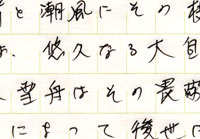 と潮風にその
、悠久なる大自
雪舟はその畏敬
によって後世に